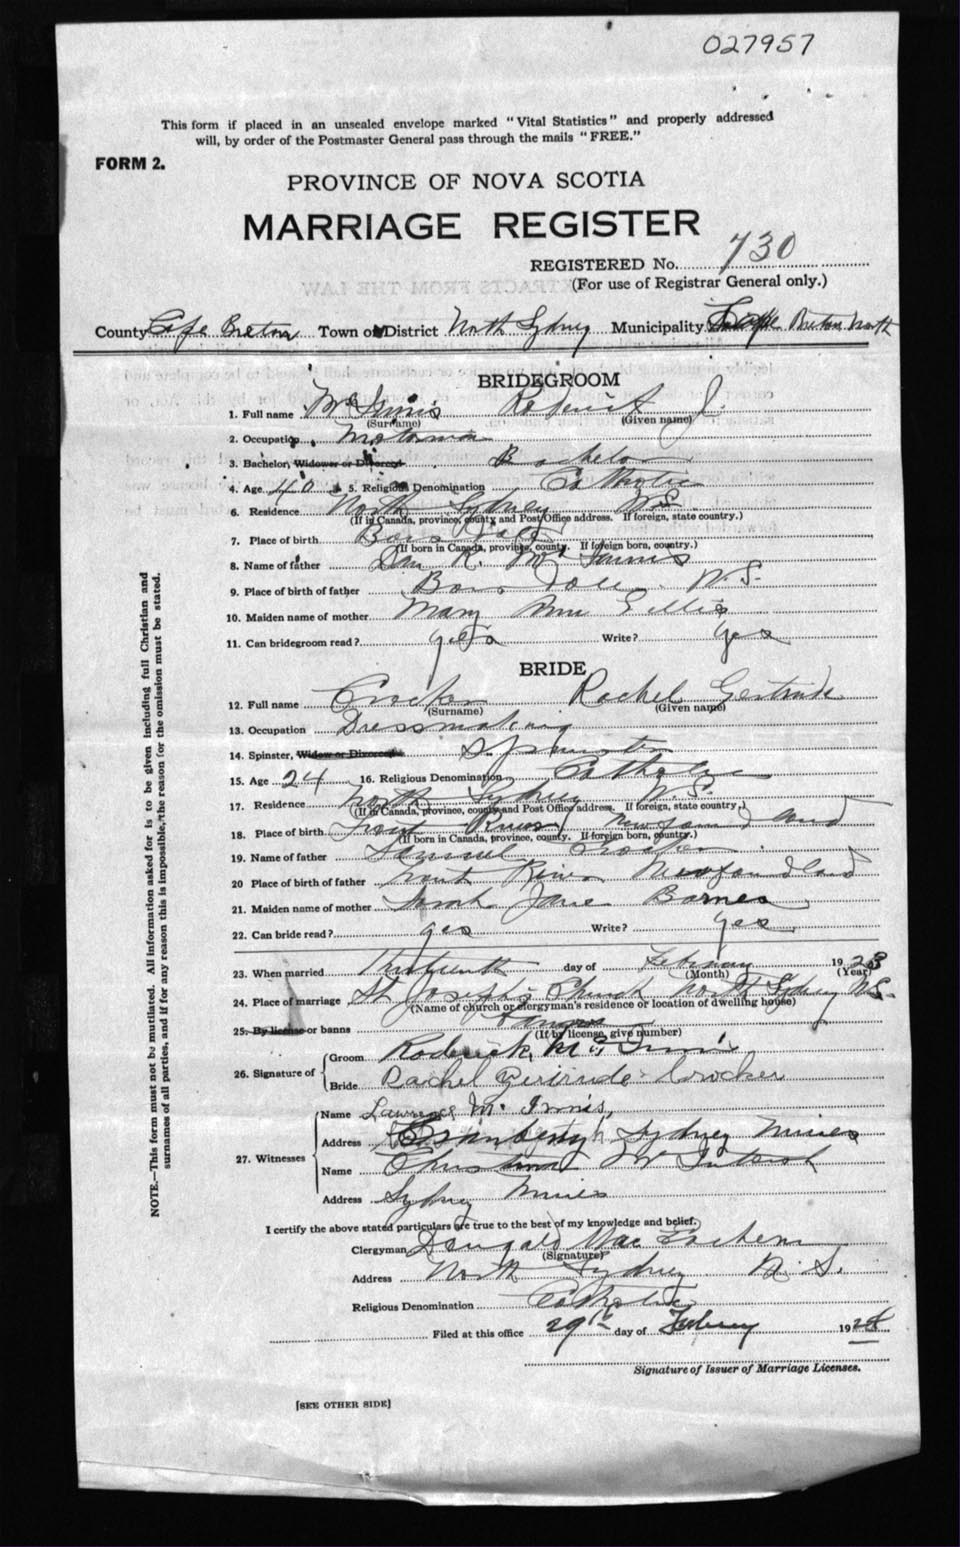 027957
This form if placed in an unsealed envelope marked "Vital Statistics" and properly addressed
will, by order of the Postmaster General pass through the mails "FREE."
FORM 2.
PROVINCE OF NOVA SCOTIA
MARRIAGE REGISTER
REGISTERED No. 730
(For use of Registrar General only.)
County Cape Breton Town or District North Sydney Municipality Cape Breton North
BRIDEGROOM
1. Full name McInnis Roderick J.
(Surname) (Given name)
2. Occupation Motorman
3. Bachelor, Widower or Divorced Bachelor
4. Age 40 5. Religious Denomination Catholic
6. Residence North Sydney N.S.
(If in Canada, province, county and Post Office address. If foreign, state country.)
7. Place of birth
(If born in Canada, province, county. If foreign born, country.)
8. Name of father Dan R. McInnis
9. Place of birth of father N.S.
10. Maiden name of mother Mary Ann Gillis
11. Can bridegroom read? yes Write? yes
BRIDE
12. Full name Crocker Rachel Gertrude
(Surname) (Given name)
13. Occupation Dressmaking
14. Spinster, Widow or Divorced Spinster
15. Age 24 16. Religious Denomination Catholic
17. Residence North Sydney N.S.
(If in Canada, province, county and Post Office address. If foreign, state country.)
18. Place of birth Trout River Newfoundland
(If born in Canada, province, county. If foreign born, country.)
19. Name of father Samuel Crocker
20 Place of birth of father Trout River Newfoundland
21. Maiden name of mother Sarah Jane Barnes
22. Can bride read? yes Write? yes
23. When married thirteenth day of February 1923
(Month) (Year)
24. Place of marriage St Joseph's Church North Sydney N.S.
(Name of church or clergyman's residence or location of dwelling house)
25. By license or banns banns
(If by license, give number)
26. Signature of Groom Roderick McInnis
Bride Rachel Gertrude Crocker
27. Witnesses Name Lawrence McInnis,
Address Sydney Mines
Name McIntosh
Address Sydney Mines
I certify the above stated particulars are true to the best of my knowledge and belief.
Clergyman Dougald MacEachern
(Signature)
Address North Sydney N.S.
Religious Denomination Catholic
Filed at this office 29th day of February 1924
Signature of Issuer of Marriage Licenses.
[SEE OTHER SIDE]
NOTE.—This form must not be mutilated. All information asked for is to be given including full Christian and
surnames of all parties, and if for any reason this is impossible, the reason for the omission must be stated.